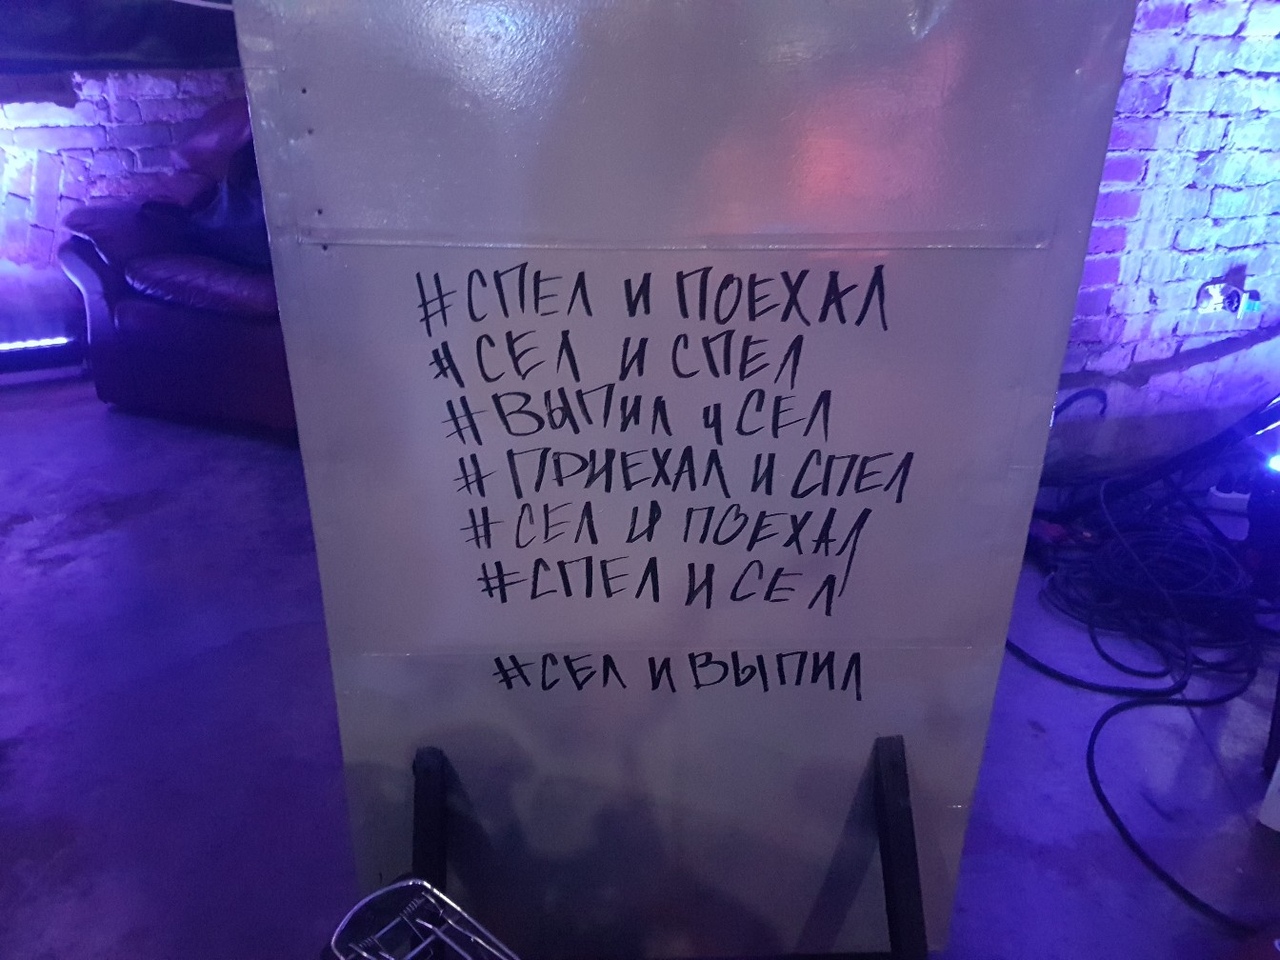 #СПЕЛ И ПОЕХАЛ
#СЕЛ И СПЕЛ
#ВЫПИЛ И СЕЛ
#ПРИЕХАЛ И СПЕЛ
#СЕЛ И ПОЕХАЛ
#СПЕЛ И СЕЛ
#СЕЛ И ВЫПИЛ